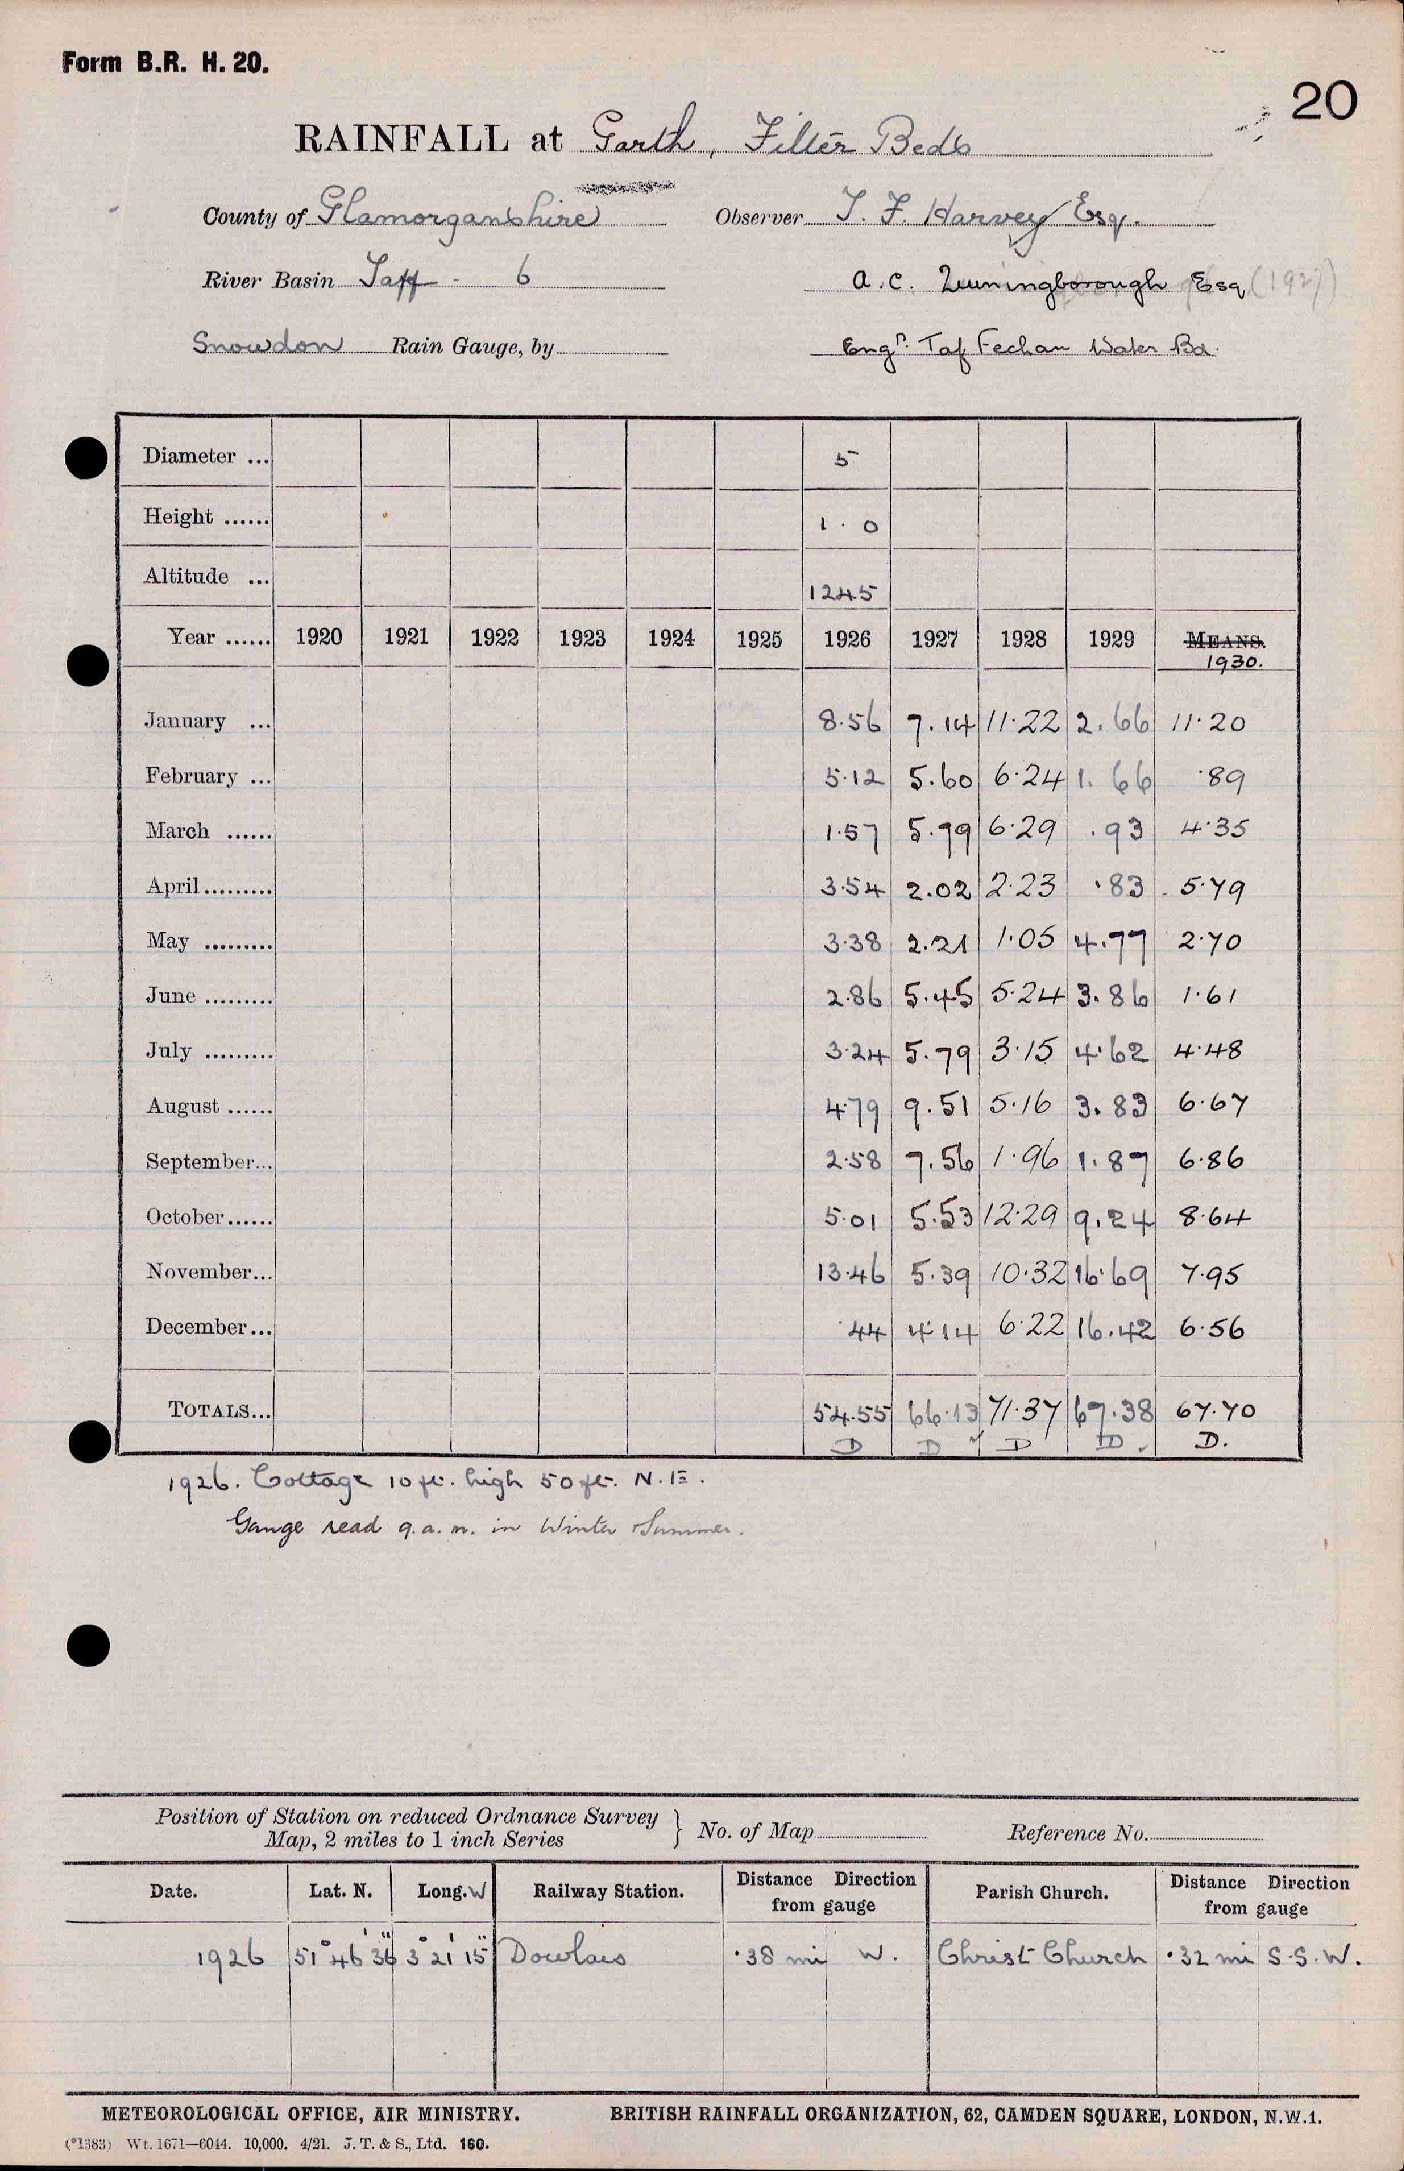 Form B.R. H. 20.
20
RAINFALL at Garth, Filter Beds
County of Glamorganshire Observer T. F. Harvey Esq.
River Basin Taff - 6 A. C. Esq (1927)
Snowdon Rain Gauge, by Engr. Taf Fechan Water Bd.
Diameter ... 5
Height ...... 1 . 0
Altitude ... 1245
Year ...... 1920 1921 1922 1923 1924 1925 1926 1927 1928 1929 MEANS.
1930.
January ... 8.56 7.14 11.22 2.66 11.20
February ... 5.12 5.60 6.24 1.66 .89
March ...... 1.57 5.79 6.29 .93 4.35
April ......... 3.54 2.02 2.23 .83 5.79
May ......... 3.38 2.21 1.05 4.77 2.70
June ......... 2.86 5.45 5.24 3.86 1.61
July ......... 3.24 5.79 3.15 4.62 4.48
August ...... 4.79 9.51 5.16 3.83 6.67
September... 2.58 7.56 1.96 1.87 6.86
October...... 5.01 5.53 12.29 9.24 8.64
November... 13.46 5.39 10.32 16.69 7.95
December... .44 4.14 6.22 16.42 6.56
TOTALS... 54.55 66.13 71.37 67.38 67.70
D D D D. D.
1926. Cottage 10 ft. high 50 ft. N.E.
Gauge read 9. a. m. in Winter & Summer.
Position of Station on reduced Ordnance Survey
Map, 2 miles to 1 inch Series } No. of Map Reference No.
Date. Lat. N. Long. W Railway Station. Distance Direction from gauge Parish Church. Distance Direction from gauge
1926 51° 46' 36" 3° 21' 15" Dowlais .38 mi W. Christ Church .32 mi S.S.W.
METEOROLOGICAL OFFICE, AIR MINISTRY. BRITISH RAINFALL ORGANIZATION, 62, CAMDEN SQUARE, LONDON, N.W.1.
(*1383) Wt. 1671—6044. 10,000. 4/21. J. T. & S., Ltd. 160.